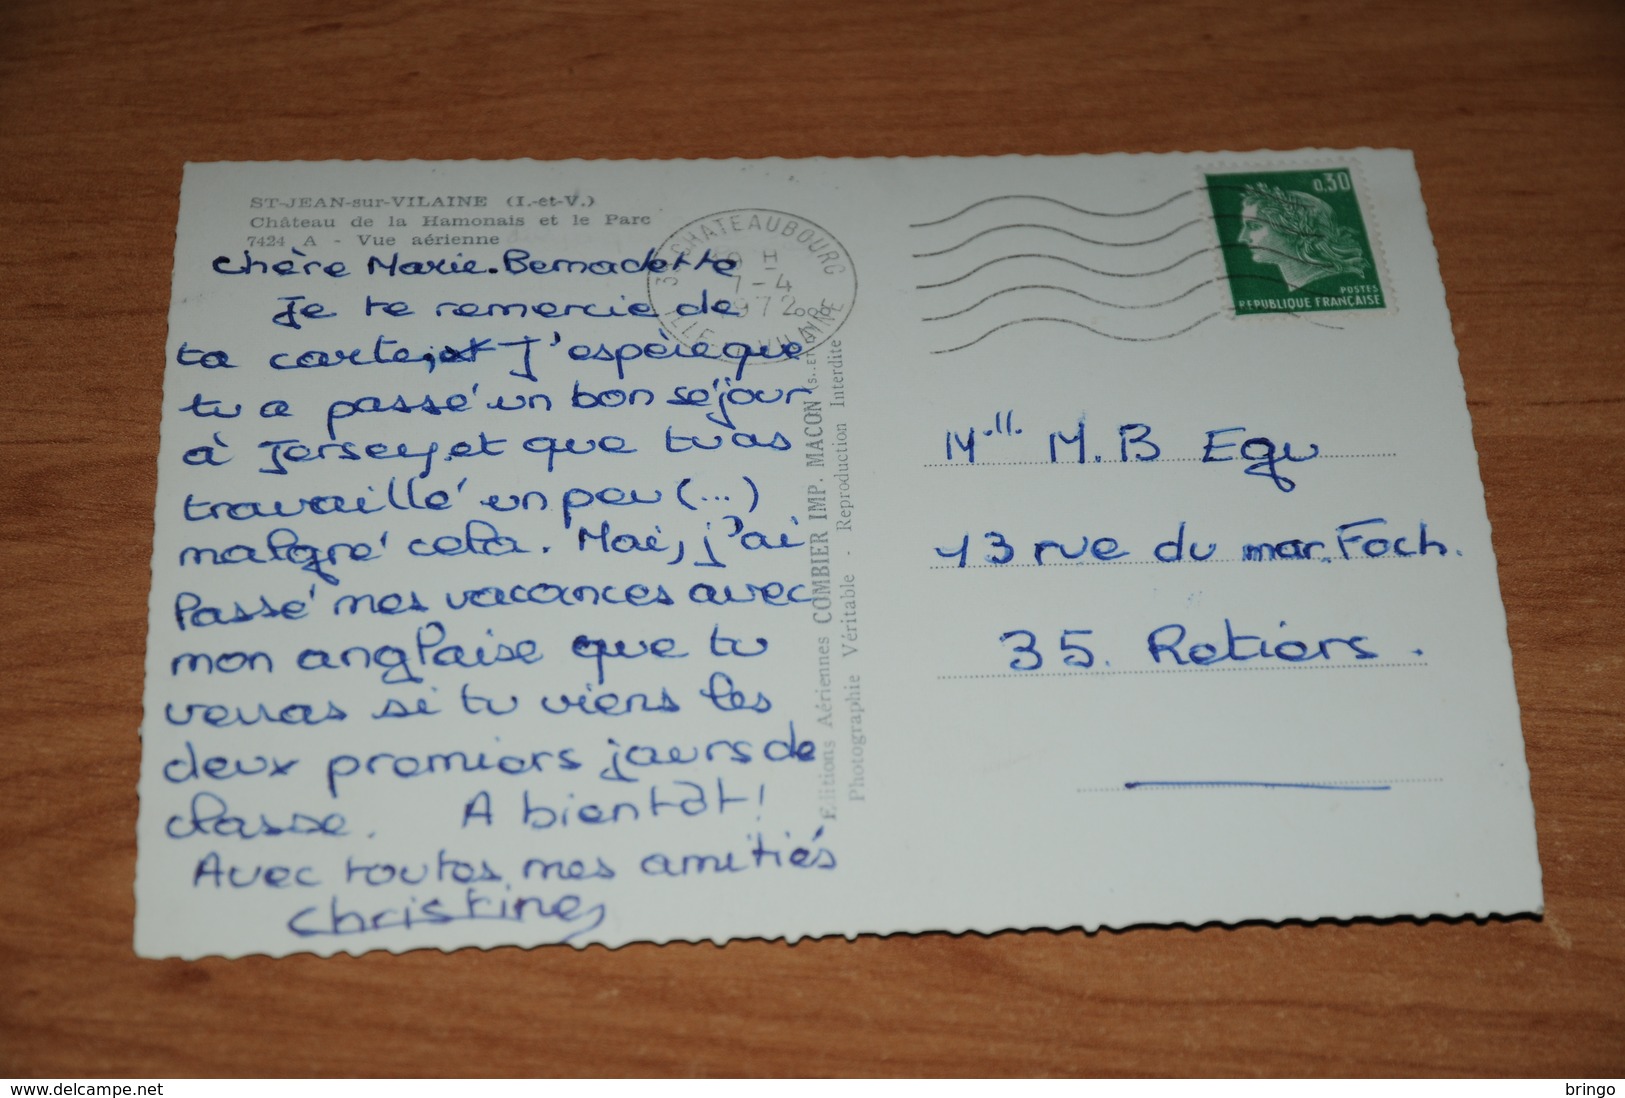 ST-JEAN-sur-VILAINE (I.-et-V.)
Château de la Hamonais et le Parc
7424 A - Vue aérienne
Chère Marie-Bernadette
Je te remercie de
ta carte, J'espère que
tu a passé un bon séjour
à Jersey, et que tu as
travaillé un peu (...)
malgré cela. Moi, j'ai
Passé mes vacances avec
mon anglaise que tu
verras si tu viens les
deux premiers jours de
classe. A bientôt!
Avec toutes mes amitiés
Christine
35 CHATEAUBOURG
H
7-4
1972
ILLE-ET-VILAINE
Editions Aériennes COMBIER IMP. MACON
Photographie Véritable - Reproduction Interdite
0,30
POSTES
REPUBLIQUE FRANÇAISE
M.ll. M.B Egu
13 rue du mar. Foch.
35. Retiers.
www.delcampe.net
bringo